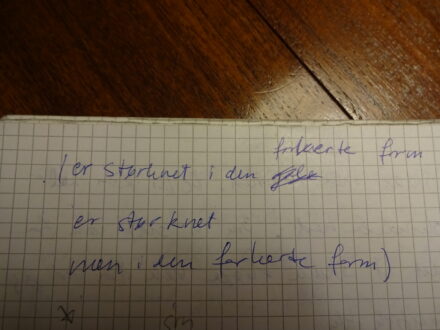 (er størknet i den forkerte form
er størknet
men i den forkerte form)